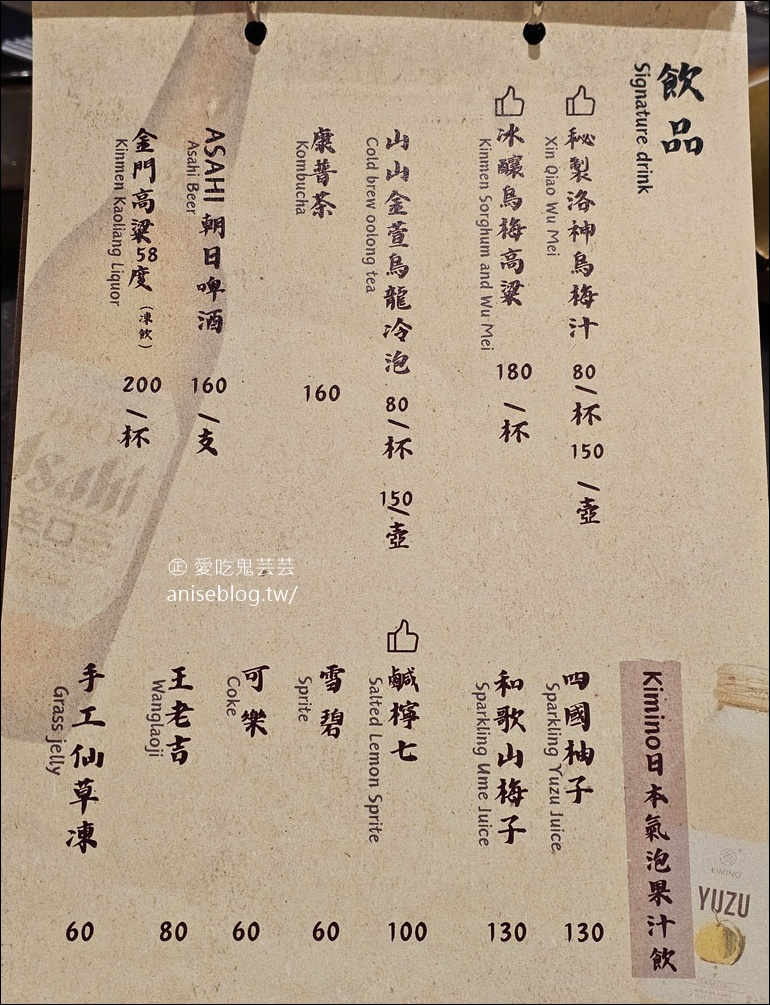 飲品
Signature drink
秘製洛神烏梅汁 80/杯 150/壺
Xin Qiao Wu Mei
冰釀烏梅高粱 180/杯
Kinmen Sorghum and Wu Mei
山山金萱烏龍冷泡 80/杯 150/壺
Cold brew oolong tea
康普茶 160
Kombucha
ASAHI 朝日啤酒 160/支
Asahi Beer
金門高粱58度(凍飲) 200/杯
Kinmen Kaoliang Liquor
㊣ 愛吃鬼芸芸
aniseblog.tw/
Kimino日本氣泡果汁飲
四國柚子 130
Sparkling Yuzu Juice
和歌山梅子 130
Sparkling Ume Juice
鹹檸七 100
Salted Lemon Sprite
雪碧 60
Sprite
可樂 60
Coke
王老吉 80
Wanglaoji
手工仙草凍 60
Grass jelly
KIMINO
YUZU